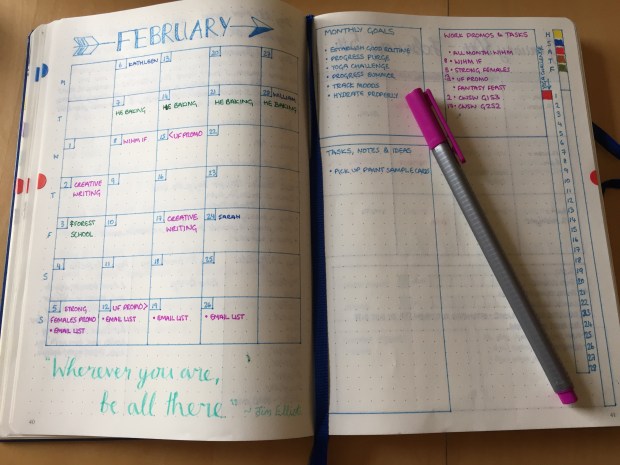 FEBRUARY
M
6 KATHLEEN
13
20
T
7
HE BAKING
14
HE BAKING
21
HE BAKING
WILLIAM
HE BAKING
W
1
8 WIHM IF
15 <UF PROMO
22
T
2 CREATIVE
WRITING
9
16
23
F
3 FOREST
SCHOOL
10
17 CREATIVE
WRITING
24 SARAH
S
4
11
18
25
S
5 STRONG
FEMALES PROMO
• EMAIL LIST
12 UF PROMO>
• EMAIL LIST
19
• EMAIL LIST
26
• EMAIL LIST
"Wherever you are,
be all there."
~ Jim Elliot
MONTHLY GOALS
• ESTABLISH GOOD ROUTINE
• PROGRESS PURGE
• YOGA CHALLENGE
• PROGRESS SUMMER
• TRACK MOODS
• HYDRATE PROPERLY
WORK PROMOS & TASKS
• ALL MONTH WIHM
8 • WIHM IF
5 • STRONG FEMALES
• UF PROMO
FANTASY FEAST
2 • CWSW G1S3
17 • CWSW G2S2
TASKS, NOTES & IDEAS
• PICK UP PAINT SAMPLE CARD
H
S
A
T
F
1
2
3
4
5
6
7
8
9
10
11
12
13
14
15
16
17
18
19
20
21
22
23
24
25
26
27
28